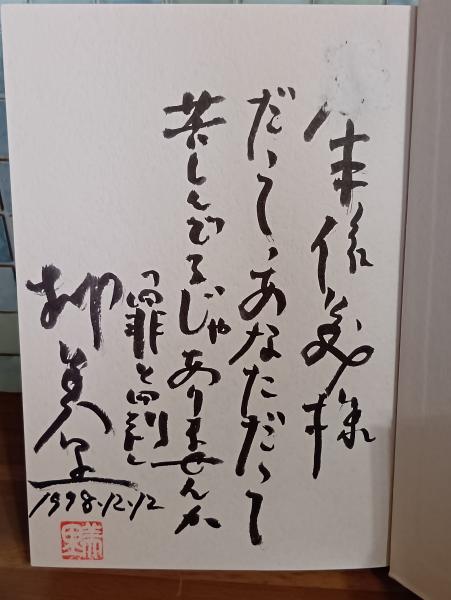 様
だって、あなただって
苦しんでるじゃありませんか
「罪と罰」
柳美里
1998.12.12
美里